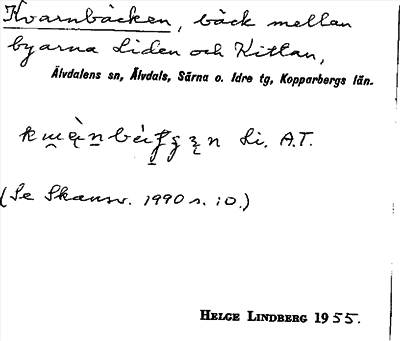 Kvarnbäcken, bäck mellan
byarna Liden och Kitlan,
Älvdalens sn, Älvdals, Särna o. Idre tg, Kopparbergs län.
Li. A.T.
(Se Skansv. 1990 s. 10.)
HELGE LINDBERG 1955.